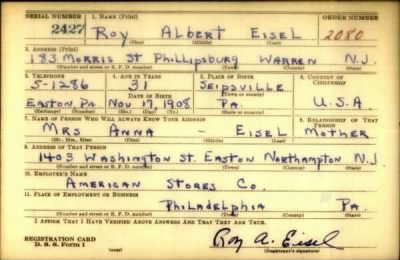 SERIAL NUMBER 1. NAME (Print) ORDER NUMBER
2427 ROY ALBERT EISEL 2080
(First) (Middle) (Last)
2. ADDRESS (Print)
183 MORRIS ST PHILLIPSBURG WARREN N.J.
(Number and street or R. F. D. number) (Town) (County) (State)
3. TELEPHONE 4. AGE IN YEARS 5. PLACE OF BIRTH 6. COUNTRY OF CITIZENSHIP
5-1286 31 SEIPSVILLE
DATE OF BIRTH
EASTON PA. NOV 17, 1908 PA. U.S.A.
(Exchange) (Number) (Mo.) (Day) (Yr.) (State or country)
7. NAME OF PERSON WHO WILL ALWAYS KNOW YOUR ADDRESS 8. RELATIONSHIP OF THAT PERSON
MRS ANNA - EISEL MOTHER
(Mr., Mrs., Miss) (First) (Middle) (Last)
9. ADDRESS OF THAT PERSON
1403 WASHINGTON ST. EASTON NORTHAMPTON N.J
(Number and street or R. F. D. number) (Town) (County) (State)
10. EMPLOYER'S NAME
AMERICAN STORES CO.
11. PLACE OF EMPLOYMENT OR BUSINESS
PHILADELPHIA PA.
(Number and street or R. F. D. number) (Town) (County) (State)
I AFFIRM THAT I HAVE VERIFIED ABOVE ANSWERS AND THAT THEY ARE TRUE.
REGISTRATION CARD
D. S. S. Form 1 (over) Roy A. Eisel
(Registrant's signature)